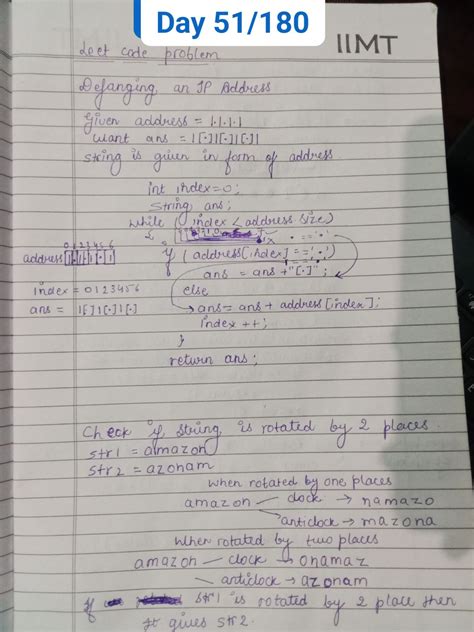 Day 51/180
IIMT
Leet code problem
Defanging an IP Address
Given address = 1.1.1.1
want ans = 1[.]1[.]1[.]1
string is given in form of address
int index=0;
String ans;
while ( index < address size)
{
0 1 2 3 4 5 6
address 1 . 1 . 1 . 1
if (address[index] == '.')
'.' == '.'
ans = ans + "[.]";
index = 0 1 2 3 4 5 6
else
ans = 1[.]1[.]1[.]
ans = ans + address[index];
index ++;
}
return ans;
Check if string is rotated by 2 places.
str1 = amazon
str2 = azonam
when rotated by one places
amazon — clock → namazo
anticlock → mazona
when rotated by two places
amazon — clock → onamaz
anticlock → azonam
If str1 is rotated by 2 place then
It gives str2.